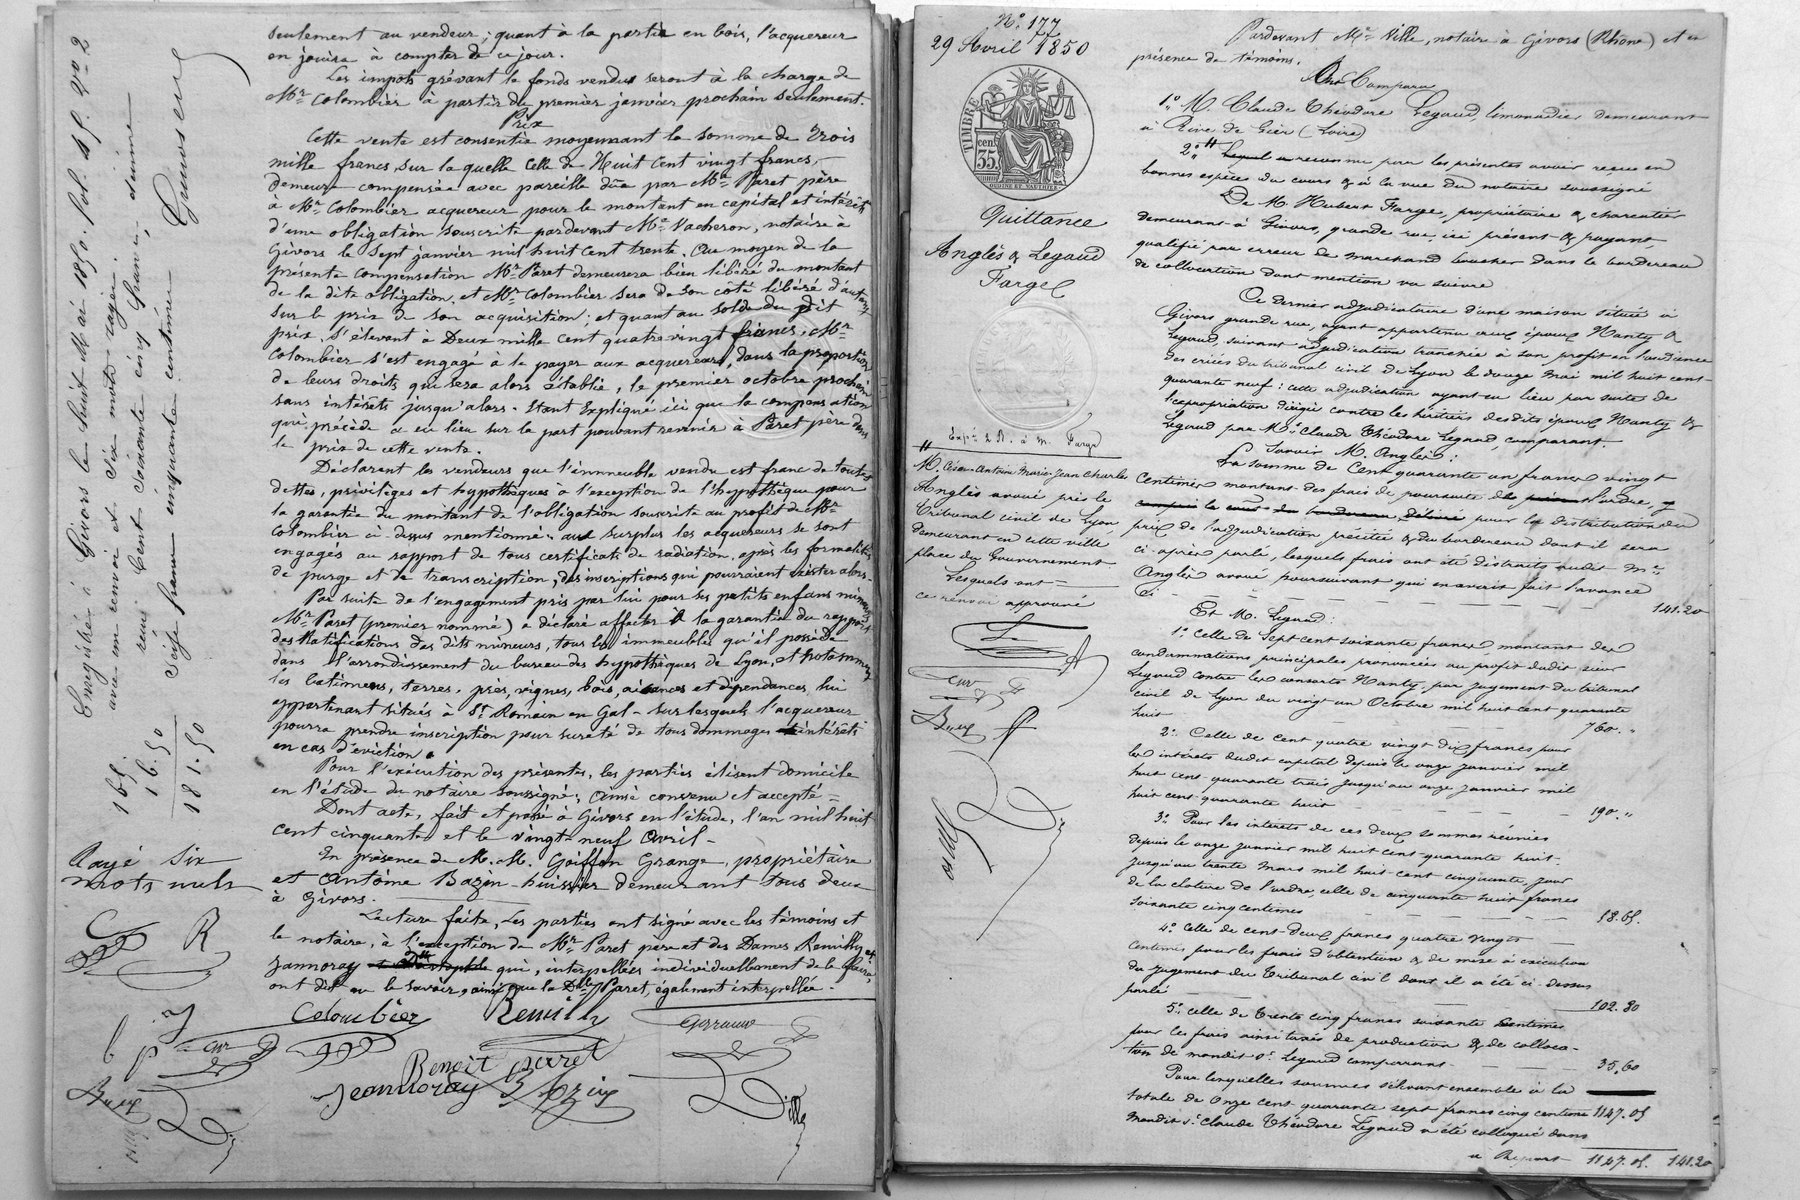 seulement au vendeur; quant à la partie en bois, l'acquereur
en jouira à compter de ce jour.
Les impots grévant le fonds vendus seront à la charge de
Mr. Colombier à partir du premier janvier prochain seulement.
Prix
Cette vente est consentie moyennant la somme de Trois
mille francs sur la quelle celle de Huit cent vingt francs,
demeure compensée avec pareille dûe par Mr. Paret père
à Mr. Colombier acquereur pour le montant en capital et intérêts
d'une obligation souscrite pardevant Me. Vacheron, notaire à
Givors le sept janvier mil huit cent trente. Au moyen de la
présente compensation Mr. Paret demeurera bien libéré du montant
de la dite obligation, et Mr. Colombier sera de son côté libéré d'autant
sur le prix de son acquisition; et quant au solde du dit
prix, s'élevant à Deux mille cent quatre vingt francs, Mr.
Colombier s'est engagé à le payer aux acquereurs, dans la proportion
de leurs droits qui sera alors établie, le premier octobre prochain
sans intérêts jusqu'alors. Etant expliqué ici que la compensation
qui précède a eu lieu sur la part pouvant revenir à Paret père dans
le prix de cette vente.
Déclarent les vendeurs que l'immeuble vendu est franc de toutes
dettes, privilèges et hypothèques à l'exception de l'hypothèque pour
la garantie du montant de l'obligation souscrite au profit de Mr.
Colombier ci-dessus mentionné; au surplus les acquereurs se sont
engagés au rapport de tous certificats de radiation, après les formalités
de purge et de transcription, des inscriptions qui pourraient exister alors.
Par suite de l'engagement pris par lui pour les petits enfans mineurs
Mr. Paret (premier nommé) a déclaré affecter à la garantie du rapport
des Ratifications des dits mineurs, tous les immeubles qu'il possède
dans l'arrondissement du bureau des hypothèques de Lyon, et notamment
les batimens, terres, prés, vignes, bois, aisances et dépendances, lui
appartenant situés à St. Romain en Gal - sur lesquels l'acquereur
pourra prendre inscription pour sureté de tous dommages intérêts
en cas d'éviction.
Pour l'exécution des présentes, les parties élisent domicile
en l'étude du notaire soussigné; Ainsi convenu et accepté =
Dont acte, fait et passé à Givors en l'étude, l'an mil huit
cent cinquante et le vingt neuf Avril -
En présence de M. M. Goiffon Grange, propriétaire
et Antoine Bazin huissier demeurant tous deux
à Givors.
Lecture faite, Les parties ont signé avec les témoins et
le notaire, à l'exception de Mr. Paret père et des Dames Remilly et
Jannoray qui, interpellées individuellement de le faire,
ont dit ne le savoir, ainsi que la Dlle. Paret, également interpellée.
Colombier Remilly
Benoit paret
Jeannoray Bazin Ville
Enregistré à Givors le huit Mai 1850. Fol. 45. Vo. 2
avec un renvoi et six mots rayés.
reçu Cent soixante cinq francs, décime
seize francs cinquante centimes
165.
16.50
181.50
Rayé six
mots nuls
No. 177
29 Avril 1850
TIMBRE
35 cen
Quittance
Anglès & Legaud
Farge
Expé. 2 R. à M. Farge
M. César-Antoine-Marie-Jean Charles
Anglès avoué près le
Tribunal civil de Lyon
demeurant en cette ville
place du Gouvernement
Lesquels ont =
ce renvoi approuvé
Pardevant Me. Ville, notaire à Givors (Rhône) et en
présence de témoins.
Ont Comparu
1o. M. Claude Théodore Legaud, limonadier demeurant
à Rive de Gier (Loire)
2o. reconnu par les présentes avoir reçu en
bonnes espèces du cours & à la vue du notaire soussigné
De M. Hubert Farge, propriétaire & charcutier
demeurant à Givors, grande rue, ici présent & payant
qualifié par erreur de marchand boucher dans le bordereau
de collocation dont mention va suivre
Ce dernier adjudicataire d'une maison située à
Givors grande rue, ayant appartenu aux époux Nanty &
Legaud, suivant adjudication tranchée à son profit en l'audience
des criées du tribunal civil de Lyon le douze Mai mil huit cent
quarante neuf: cette adjudication ayant eu lieu par suite de
l'expropriation dirigée contre les héritiers des dits époux Nanty &
Legaud par Mr. Claude Théodore Legaud, comparant.
Savoir M. Anglès:
La somme de Cent quarante un francs vingt
Centimes montant des frais de poursuite de l'ordre,
pour la distribution du
prix de l'adjudication précitée & du bordereau dont il sera
ci-après parlé, lesquels frais ont été distraits audit Me.
Anglès avoué poursuivant qui en avait fait l'avance
Ci — 141.20
Et M. Legaud:
1o. celle de Sept cent soixante francs montant des
condamnations principales prononcées au profit dudit sieur
Legaud contre les consorts Nanty, par jugement du tribunal
civil de Lyon du vingt un Octobre mil huit cent quarante
huit — 760. "
2o. Celle de cent quatre vingt dix francs pour
les intérêts dudit capital depuis le onze janvier mil
huit cent quarante trois jusqu'au onze janvier mil
huit cent quarante huit — 190. "
3o. Pour les intérêts de ces deux sommes réunies
depuis le onze janvier mil huit cent quarante huit
jusqu'au trente Mars mil huit cent cinquante, jour
de la cloture de l'ordre, celle de cinquante huit francs
soixante cinq centimes — 58.65.
4o. Celle de cent deux francs quatre vingts
centimes pour les frais d'obtention & de mise à exécution
du jugement du Tribunal civil dont il a été ci-dessus
parlé — 102.80
5o. celle de Trente cinq francs soixante centimes
pour les frais ainsi taxés de production & de colloca-
tion de mondit sr. Legaud comparant — 35.60
Pour lesquelles sommes s'élevant ensemble à la
totale de Onze cent quarante sept francs cinq centimes 1147.05
mondit sr. Claude Théodore Legaud a été colloqué dans
à Reporter 1147.05. 141.20